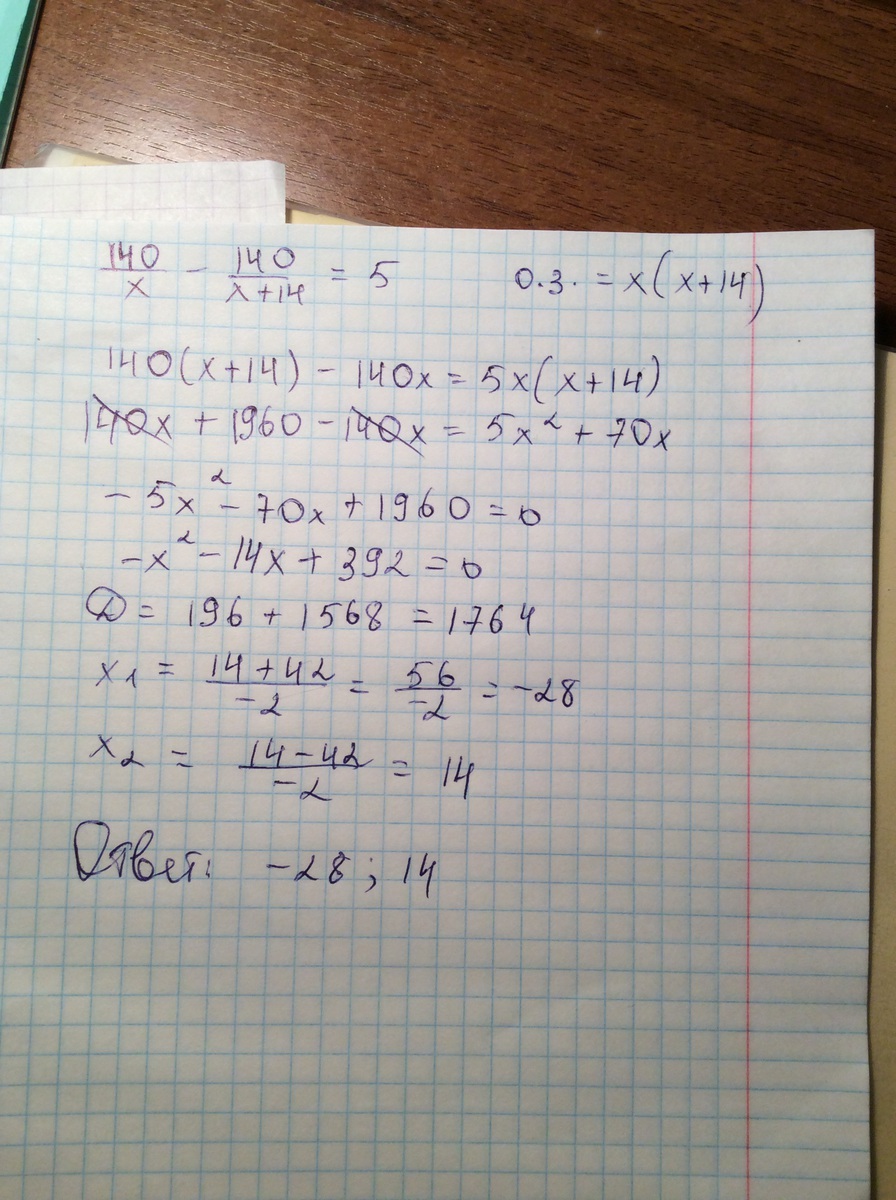 140/x - 140/(x+14) = 5 О.З. = x(x+14)
140(x+14) - 140x = 5x(x+14)
140x + 1960 - 140x = 5x² + 70x
-5x² - 70x + 1960 = 0
-x² - 14x + 392 = 0
D = 196 + 1568 = 1764
x₁ = (14+42)/-2 = 56/-2 = -28
x₂ = (14-42)/-2 = 14
Ответ: -28; 14